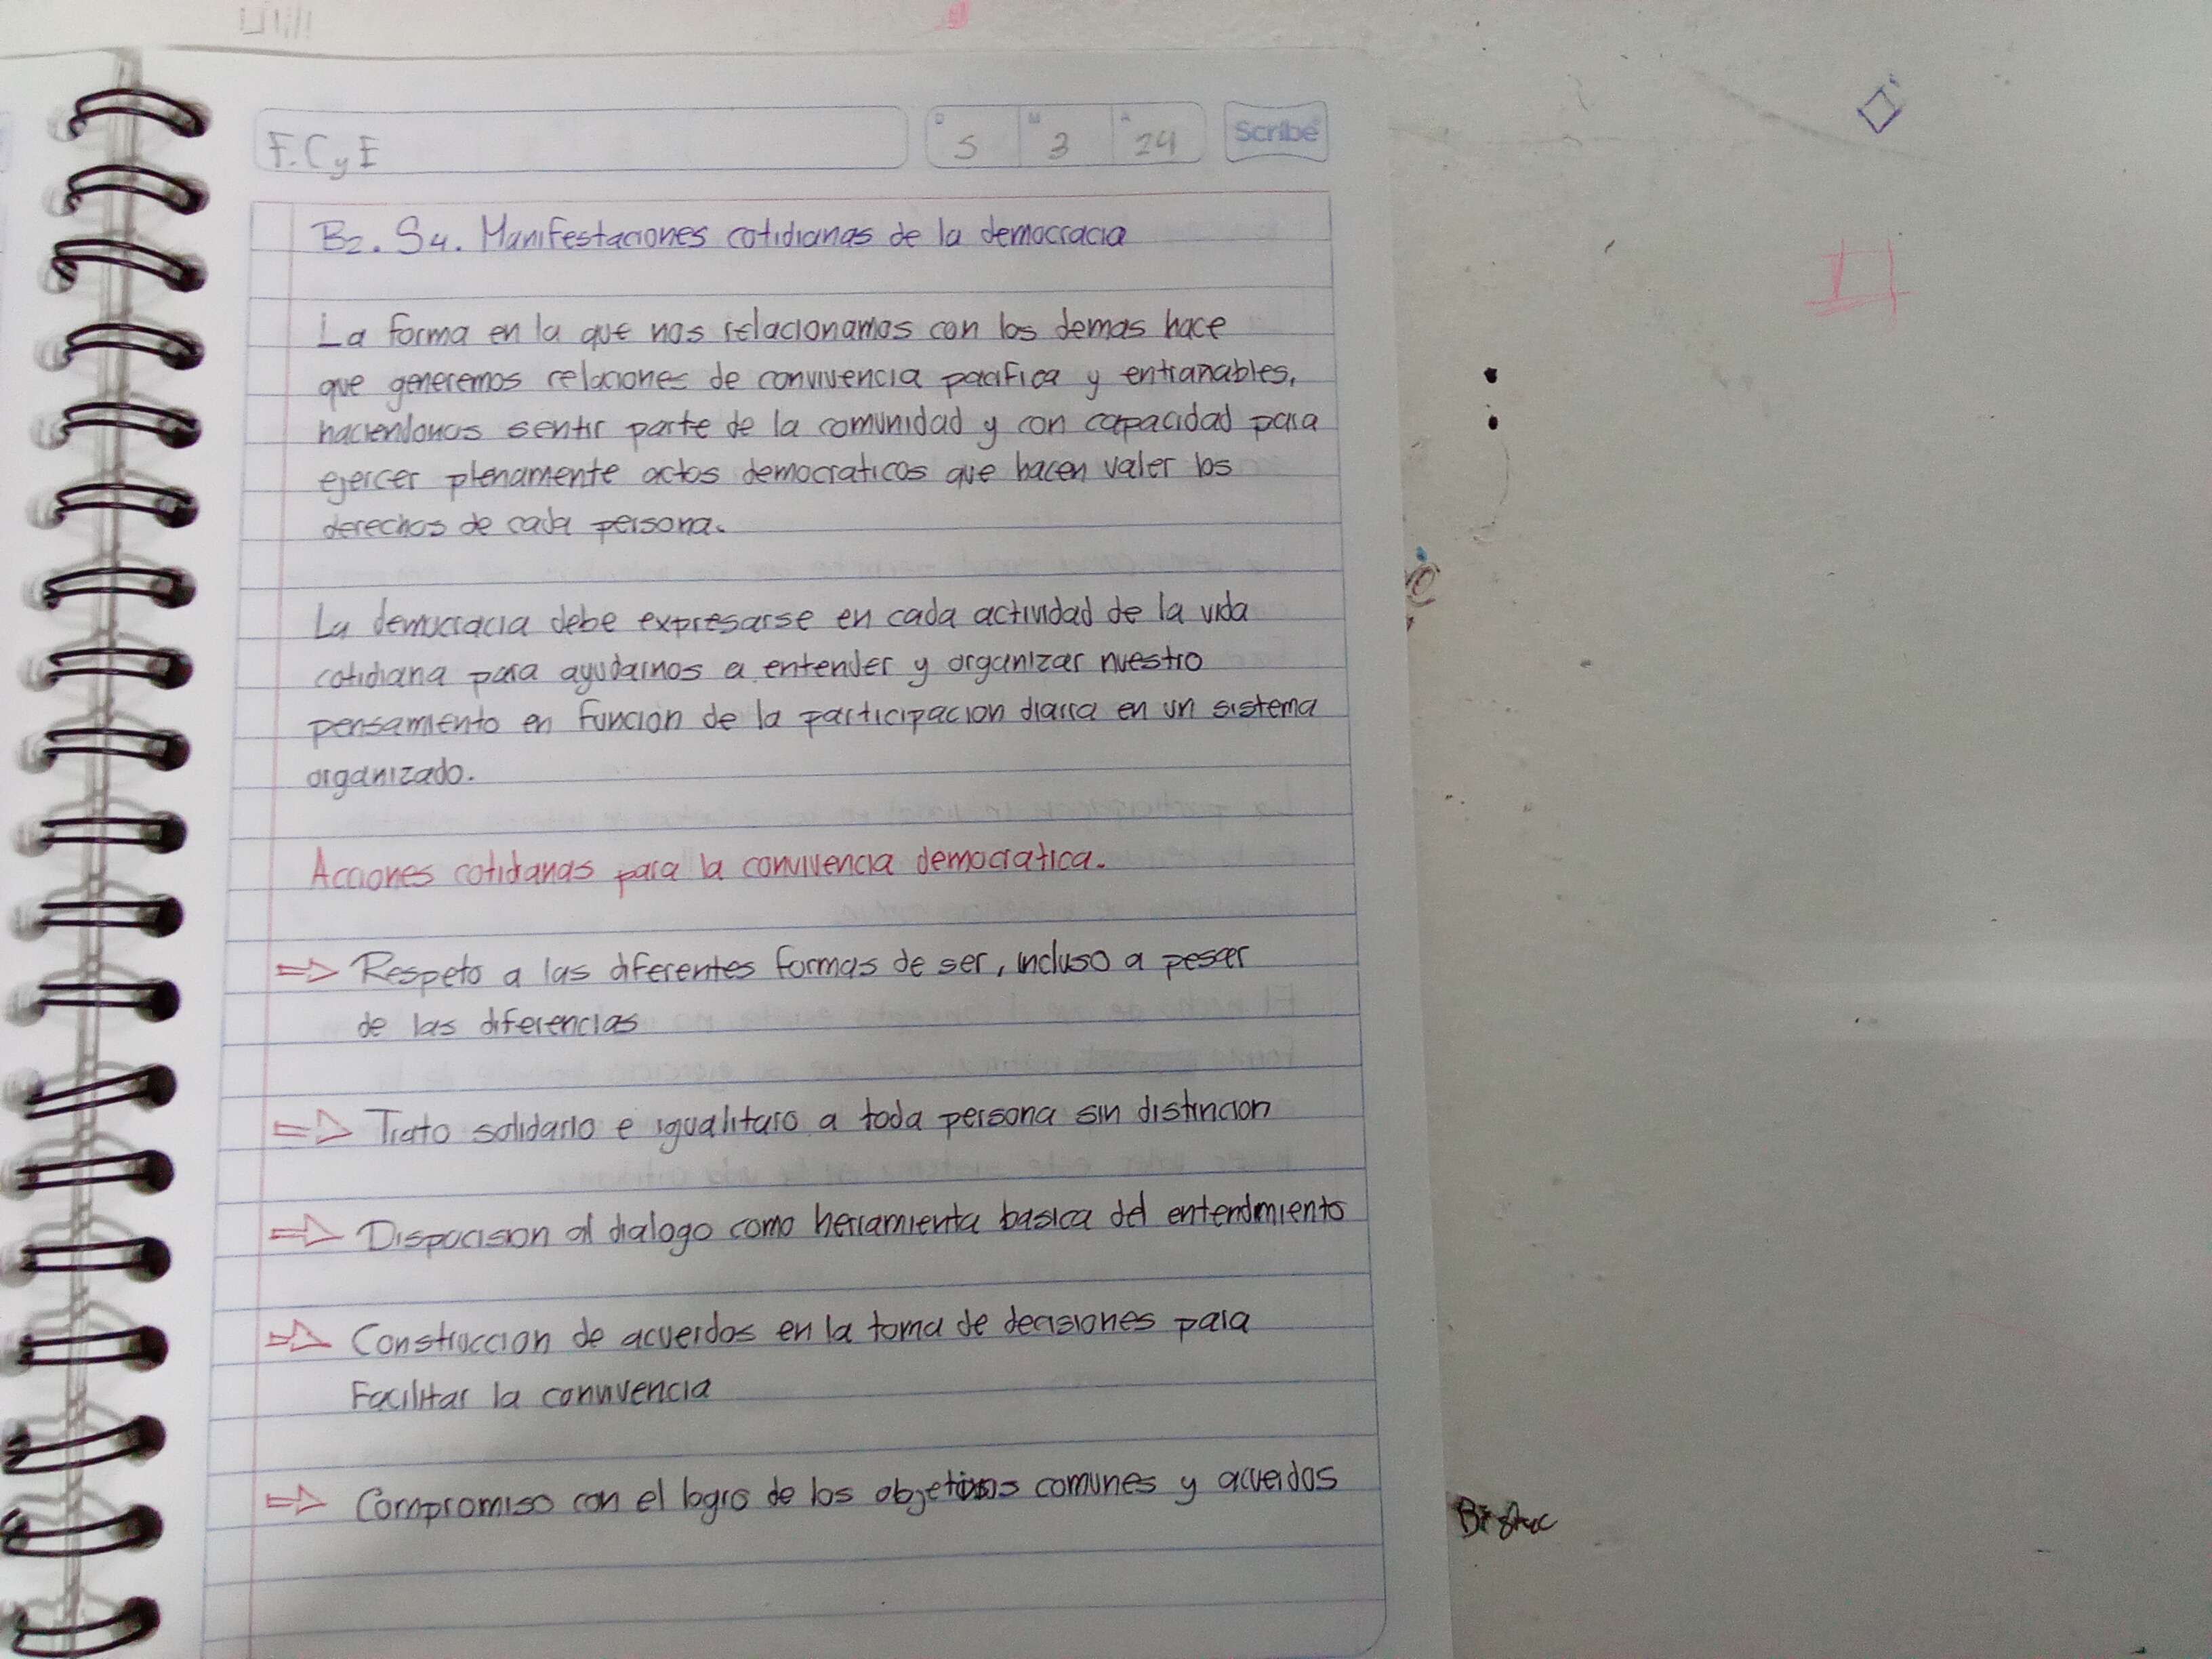 F. C y E
D 5 M 3 A 24 Scribe
B2. S4. Manifestaciones cotidianas de la democracia
La forma en la que nos relacionamos con los demas hace
que generemos relaciones de convivencia pacifica y entrañables,
haciendonos sentir parte de la comunidad y con capacidad para
ejercer plenamente actos democraticos que hacen valer los
derechos de cada persona.
La democracia debe expresarse en cada actividad de la vida
cotidiana para ayudarnos a entender y organizar nuestro
pensamiento en funcion de la participacion diaria en un sistema
organizado.
Acciones cotidianas para la convivencia democratica.
⇒ Respeto a las diferentes formas de ser, incluso a pesar
de las diferencias
⇒ Trato solidario e igualitaro a toda persona sin distincion
⇒ Dispocision al dialogo como herramienta basica del entendimiento
⇒ Construccion de acuerdos en la toma de decisiones para
Facilitar la convivencia
⇒ Compromiso con el logro de los objetivos comunes y acuerdos